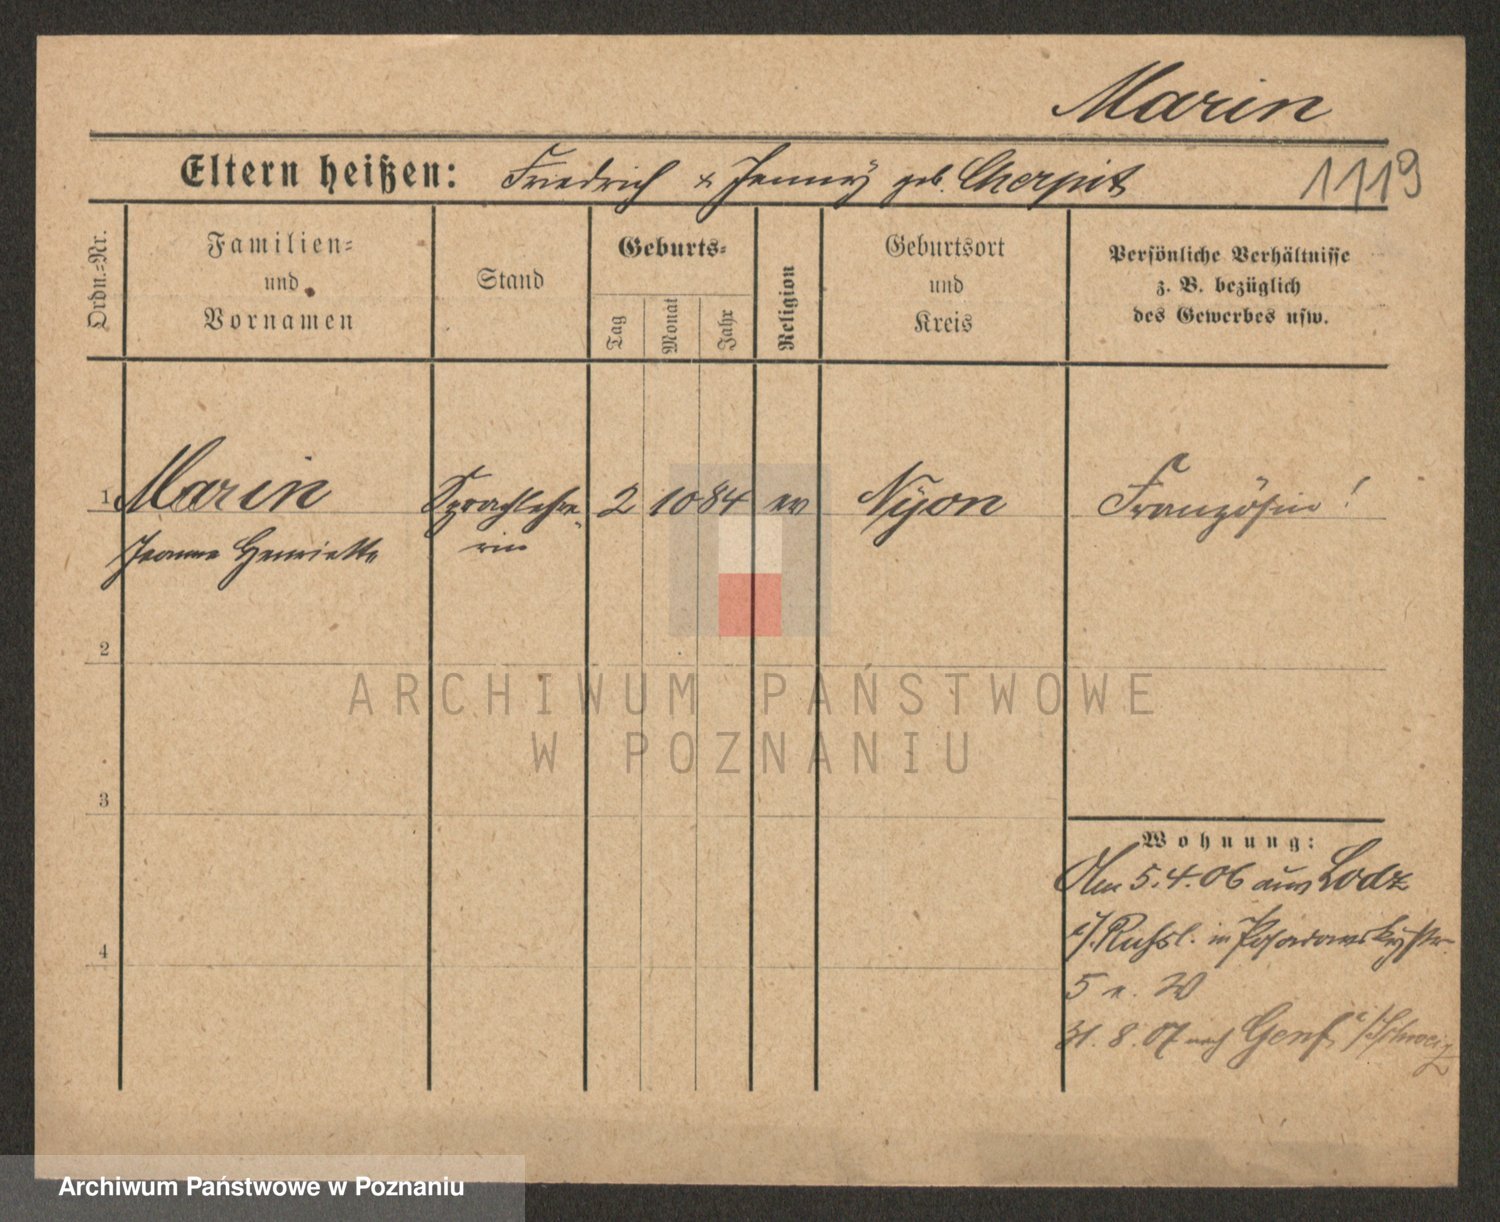 Marin
Eltern heißen: Friedrich & Jenny geb. Cherpit
1119
Ordn.=Nr.
Familien=
und
Vornamen
Stand
Geburts=
Tag
Monat
Jahr
Religion
Geburtsort
und
Kreis
Persönliche Verhältnisse
z. B. bezüglich
des Gewerbes usw.
1 Marin Sprachlehre- 2 10 84 ev Nyon Französin!
Jeanne Henriette rin
2
3
4
Wohnung:
5.4.06 aus Lodz
i/Rußl. in Posadowskystr.
5 W
31. 8. 07 nach Genf i/Schweiz
ARCHIWUM PAŃSTWOWE
W POZNANIU
Archiwum Państwowe w Poznaniu